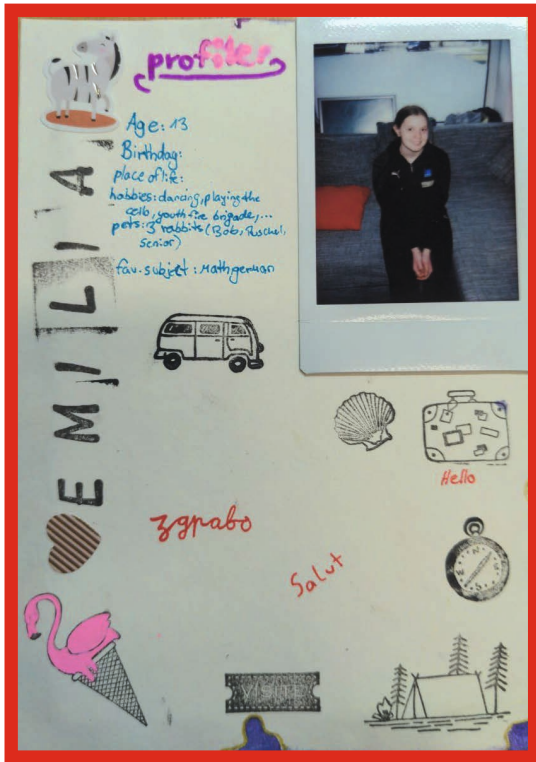 profiler
Age: 13
Birthday:
place of life:
hobbies: dancing, playing the
cello, youth fire brigade,...
pets: 3 rabbits (Bob, Puschel,
senior)
fav. subject: Math german
EMILIA
Hello
здраво
Salut
VISITE